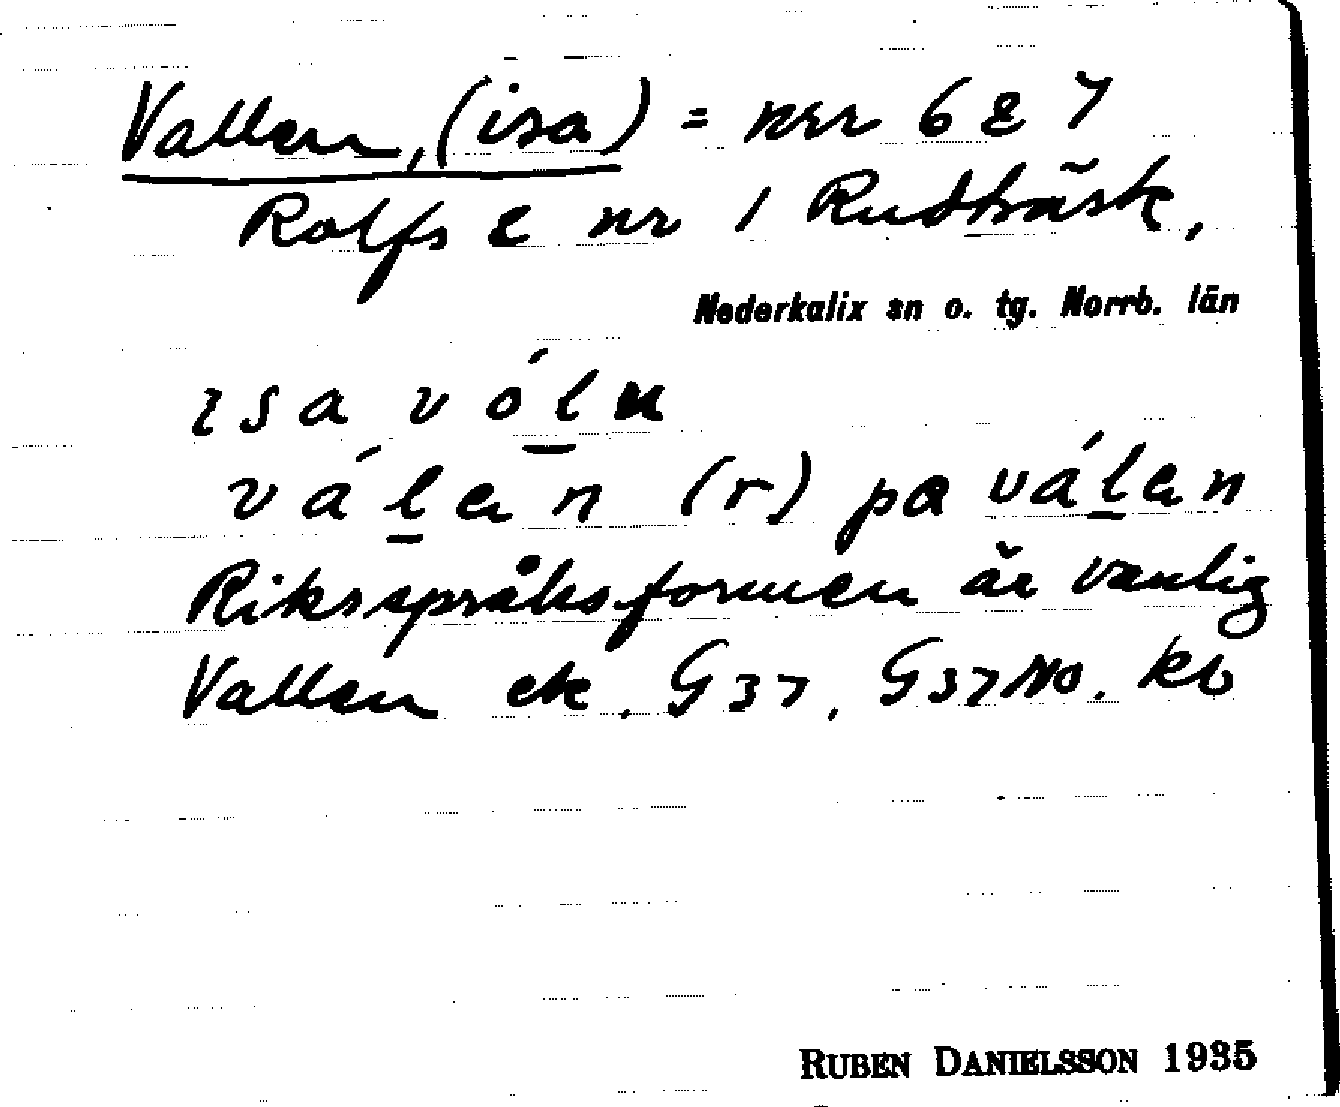 Vallen, (isa) = nrr 6 & 7
Rolfs & nr 1 Rudträsk,
Nederkalix sn o. tg. Norrb. län
ısa vó̱lu
vá̱len (r) pa vá̱len
Riksspråksformen är vanlig
Vallen ek. G37, G37No. kb
RUBEN DANIELSSON 1935